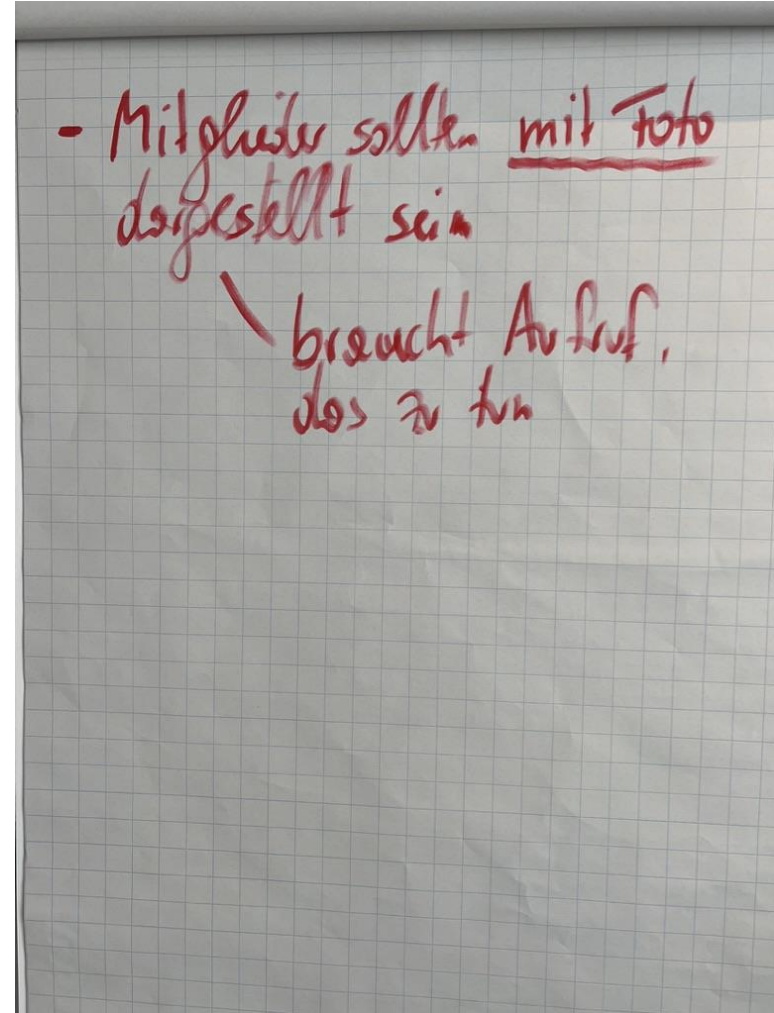 - Mitglieder sollten mit Foto
dargestellt sein
braucht Aufruf,
das zu tun